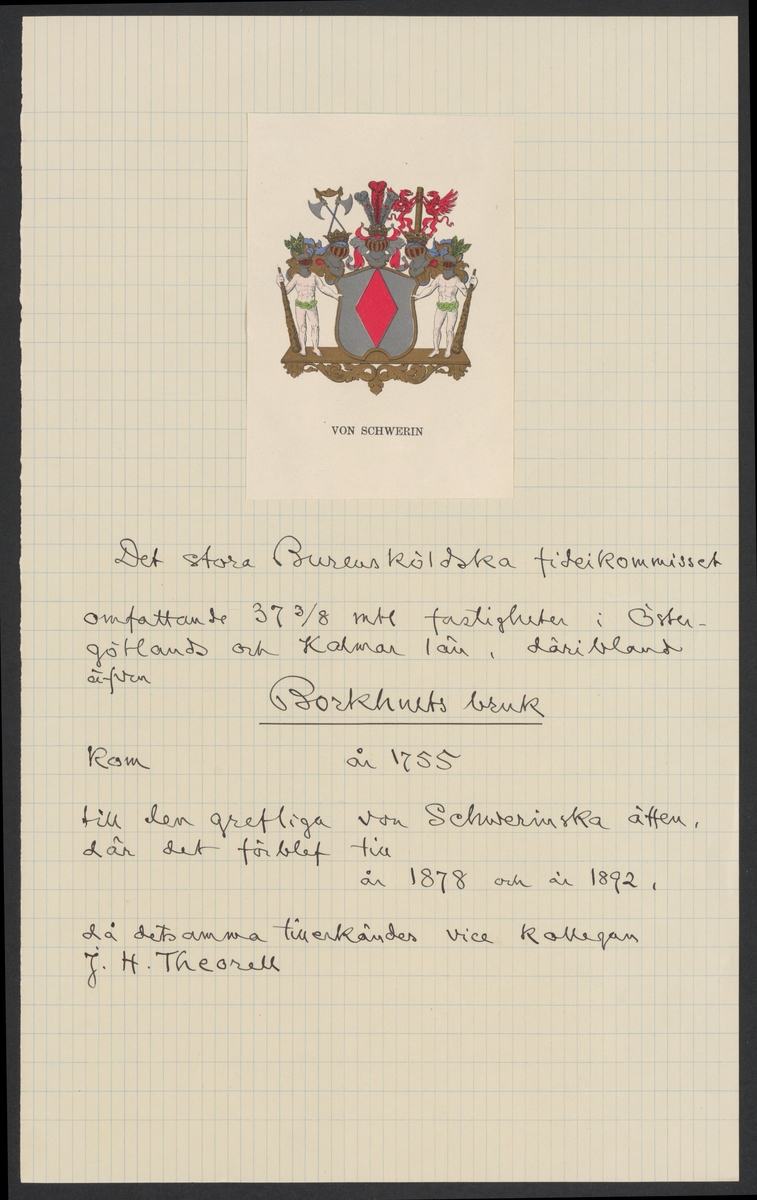 VON SCHWERIN
Det stora Burensköldska fideikommisset
omfattande 37 3/8 mtl fastigheter i Öster-
götlands och Kalmar län, däribland
äfven
Borkhults bruk
kom år 1755
till den grefliga von Schwerinska ätten,
där det förblef till
år 1878 och år 1892,
då detsamma tillerkändes vice kollegan
J. H. Theorell